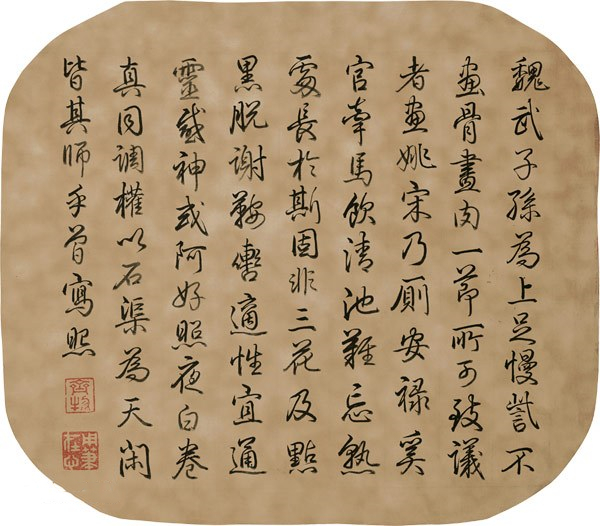 魏武子孫為上足慢訾不
畫骨畫肉一節所可致議
者畫姚宋乃厠安祿奚
官牽馬飲清池難忘熟
處長於斯固非三花及點
黑脫謝鞍轡適性宜通
靈感神或阿好照夜白卷
真同調權以石渠為天閑
皆其師乎曾寫照
齊物